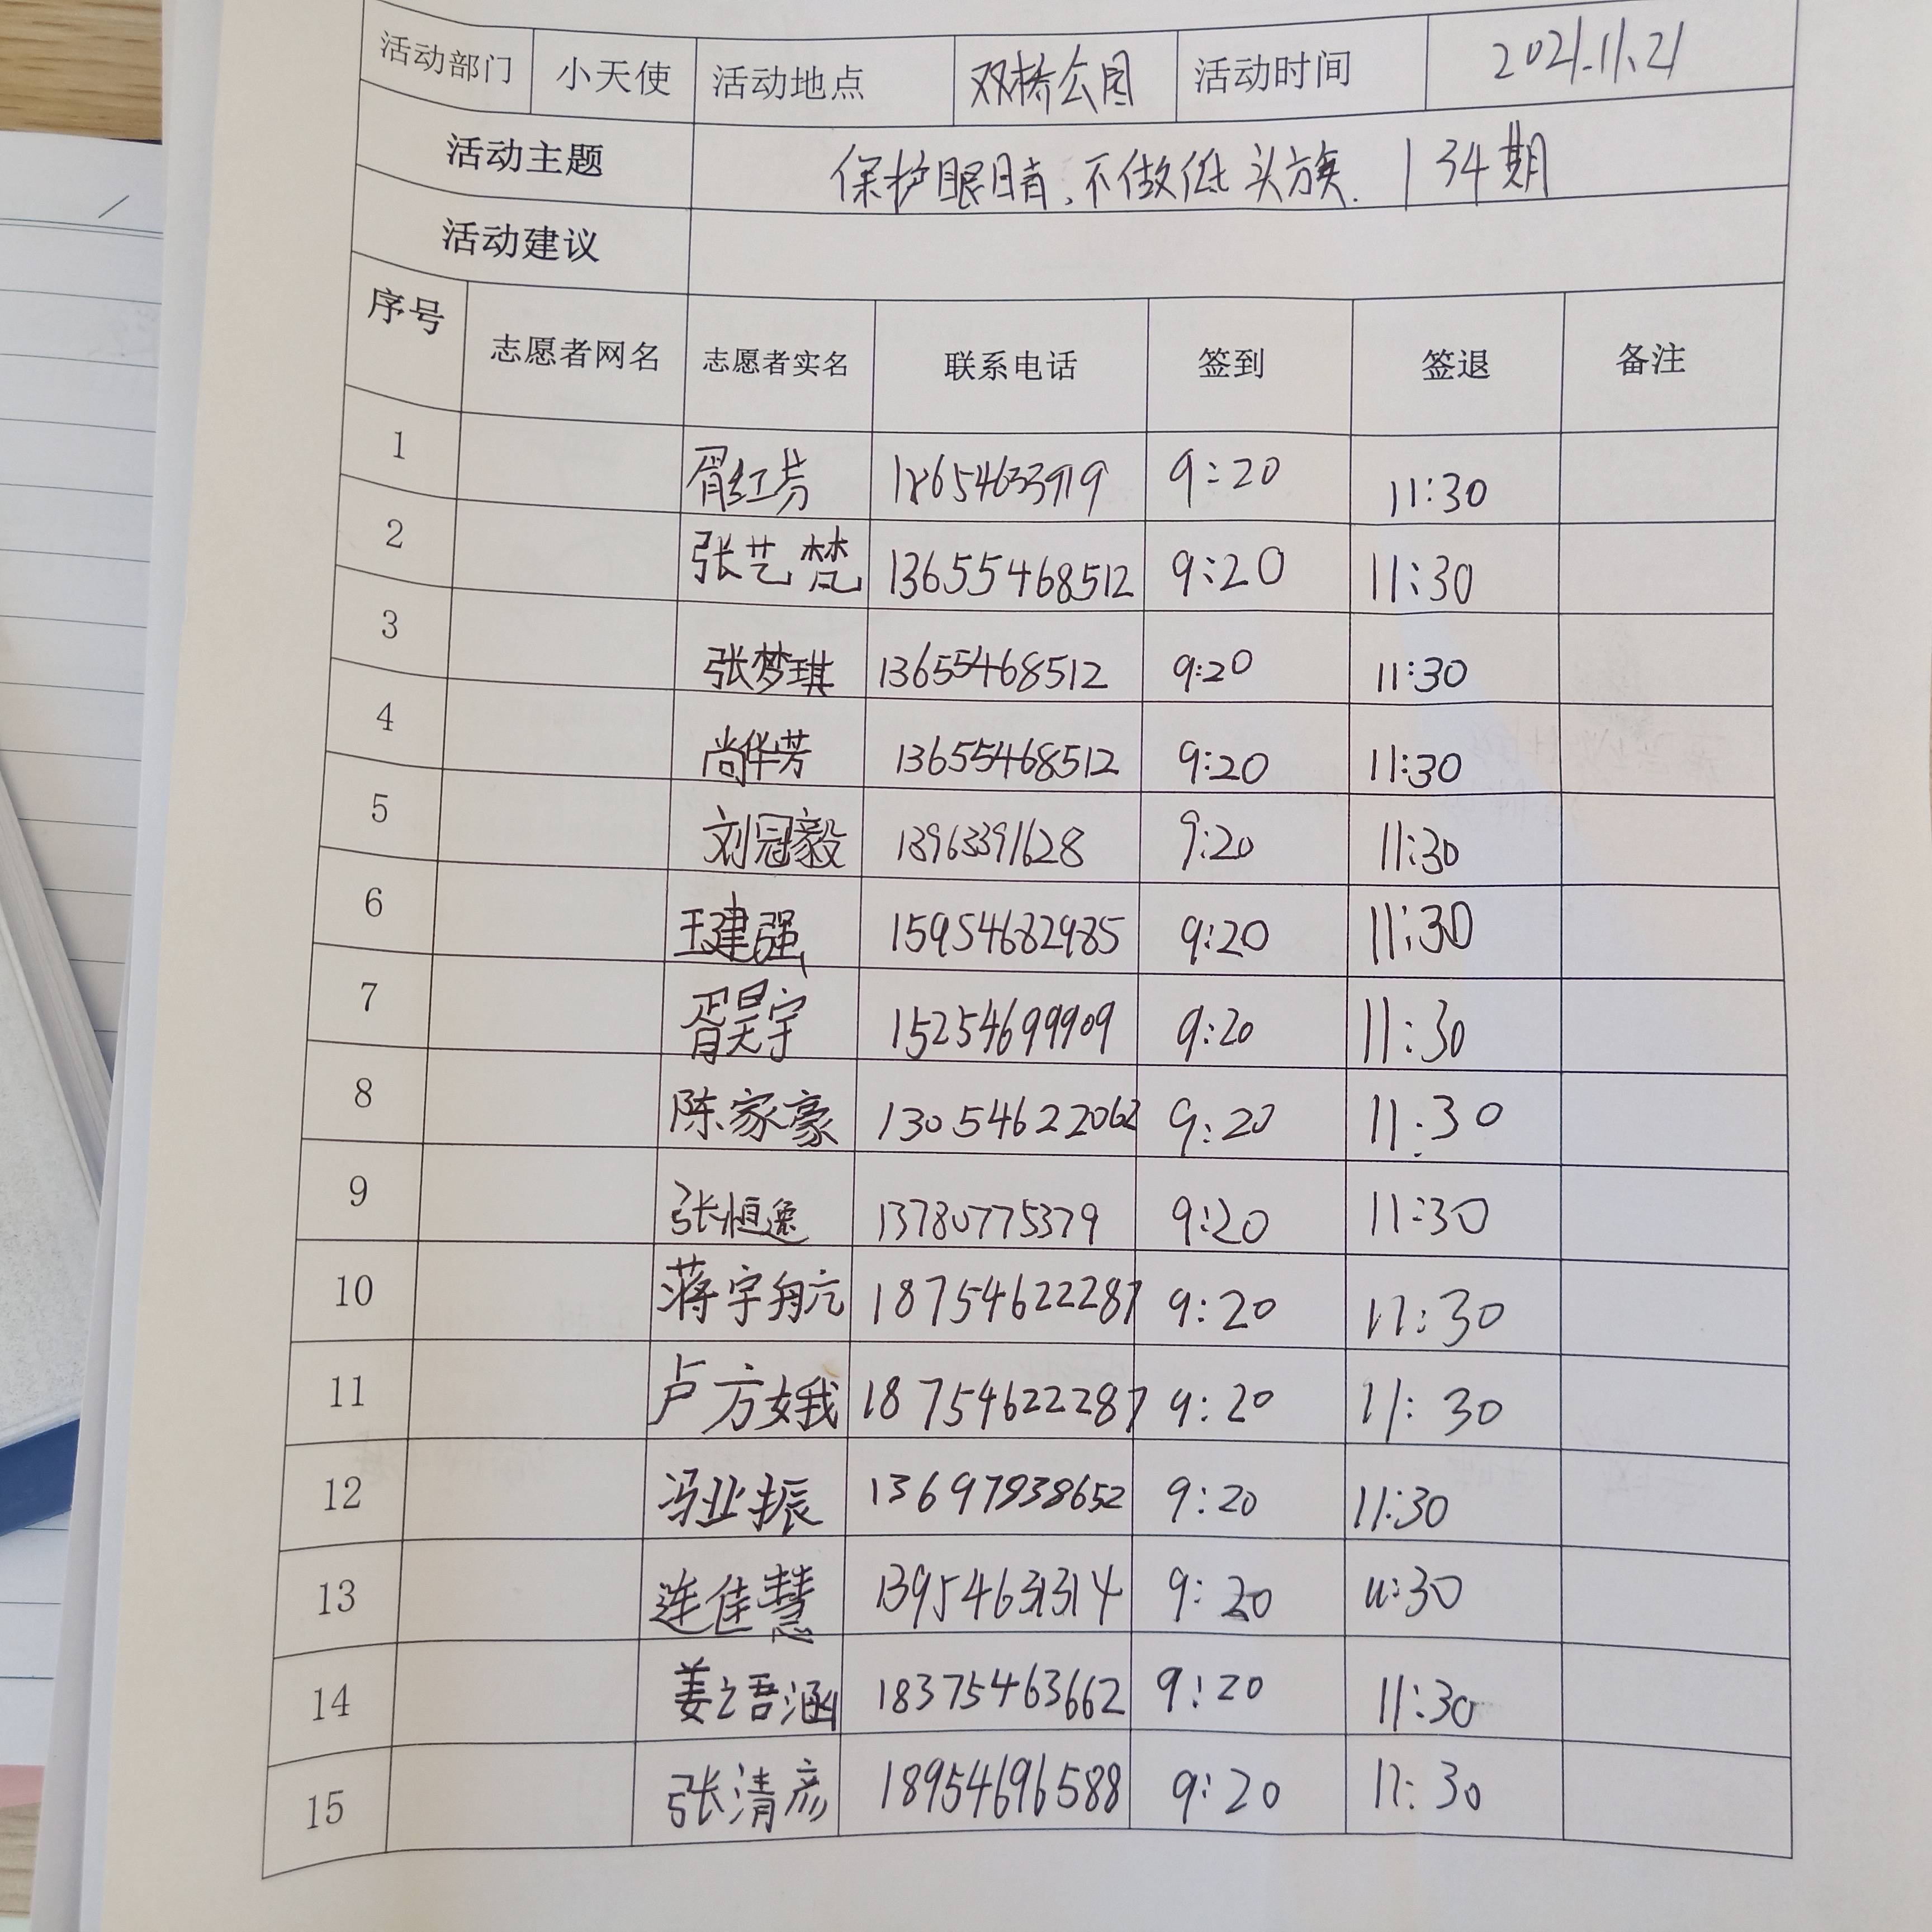 活动部门 小天使 活动地点 双桥公园 活动时间 2021.11.21
活动主题 保护眼睛、不做低头族. 134期
活动建议
序号 志愿者网名 志愿者实名 联系电话 签到 签退 备注
1 胥红芳 18654633919 9:20 11:30
2 张艺梵 13655468512 9:20 11:30
3 张梦琪 13655468512 9:20 11:30
4 尚华芳 13655468512 9:20 11:30
5 刘冠毅 13963391628 9:20 11:30
6 王建强 15954682985 9:20 11:30
7 胥昊宇 15254699909 9:20 11:30
8 陈家豪 13054622062 9:20 11:30
9 张恒逸 13780775379 9:20 11:30
10 蒋宇航 18754622287 9:20 11:30
11 卢方娥 18754622287 9:20 11:30
12 冯业振 13697938652 9:20 11:30
13 连佳慧 13954631314 9:20 11:30
14 姜语涵 18375463662 9:20 11:30
15 张清彦 18954696588 9:20 11:30